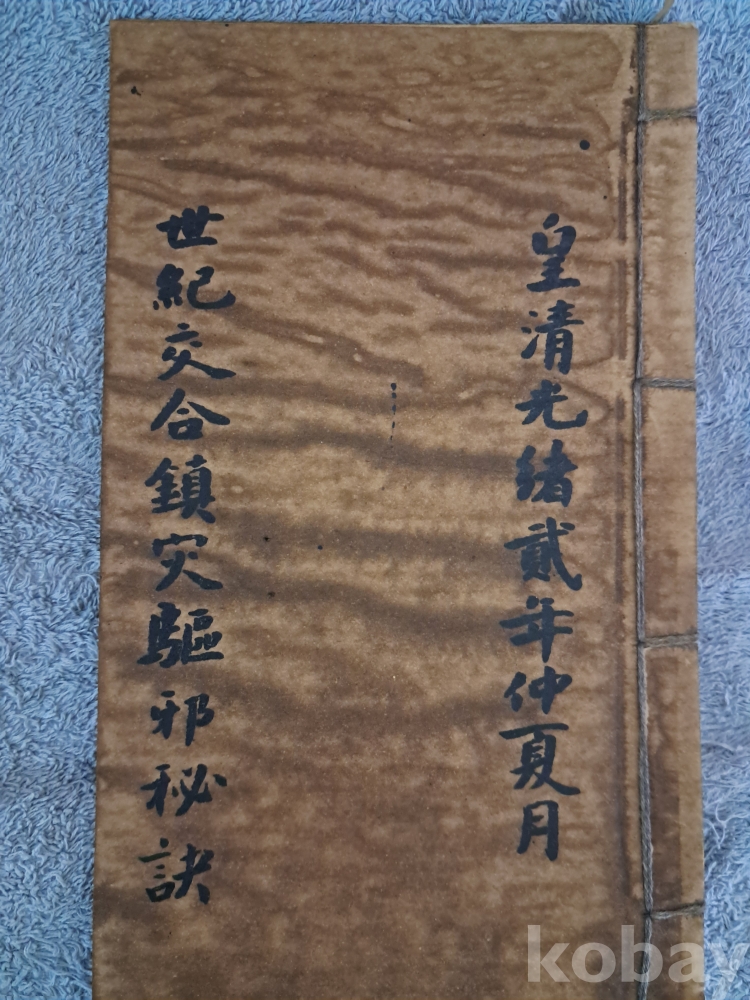 皇清光緒貳年仲夏月
世紀交合鎮灾驅邪秘訣
kobay